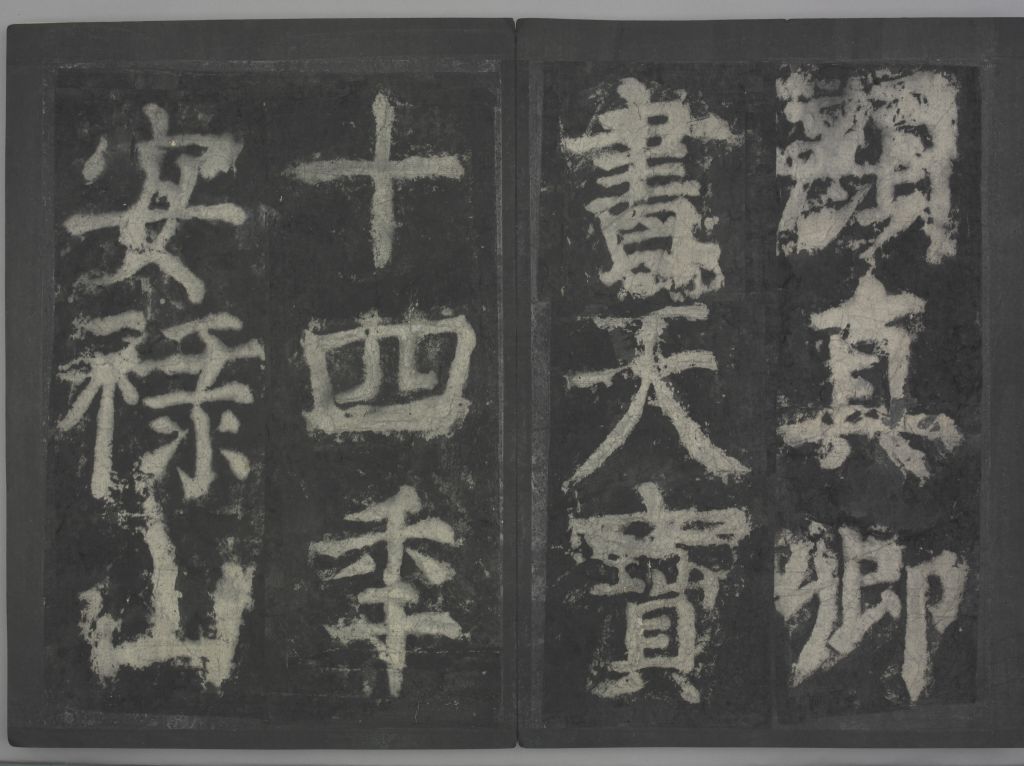 顔真卿
書天寶
十四秊
安祿山